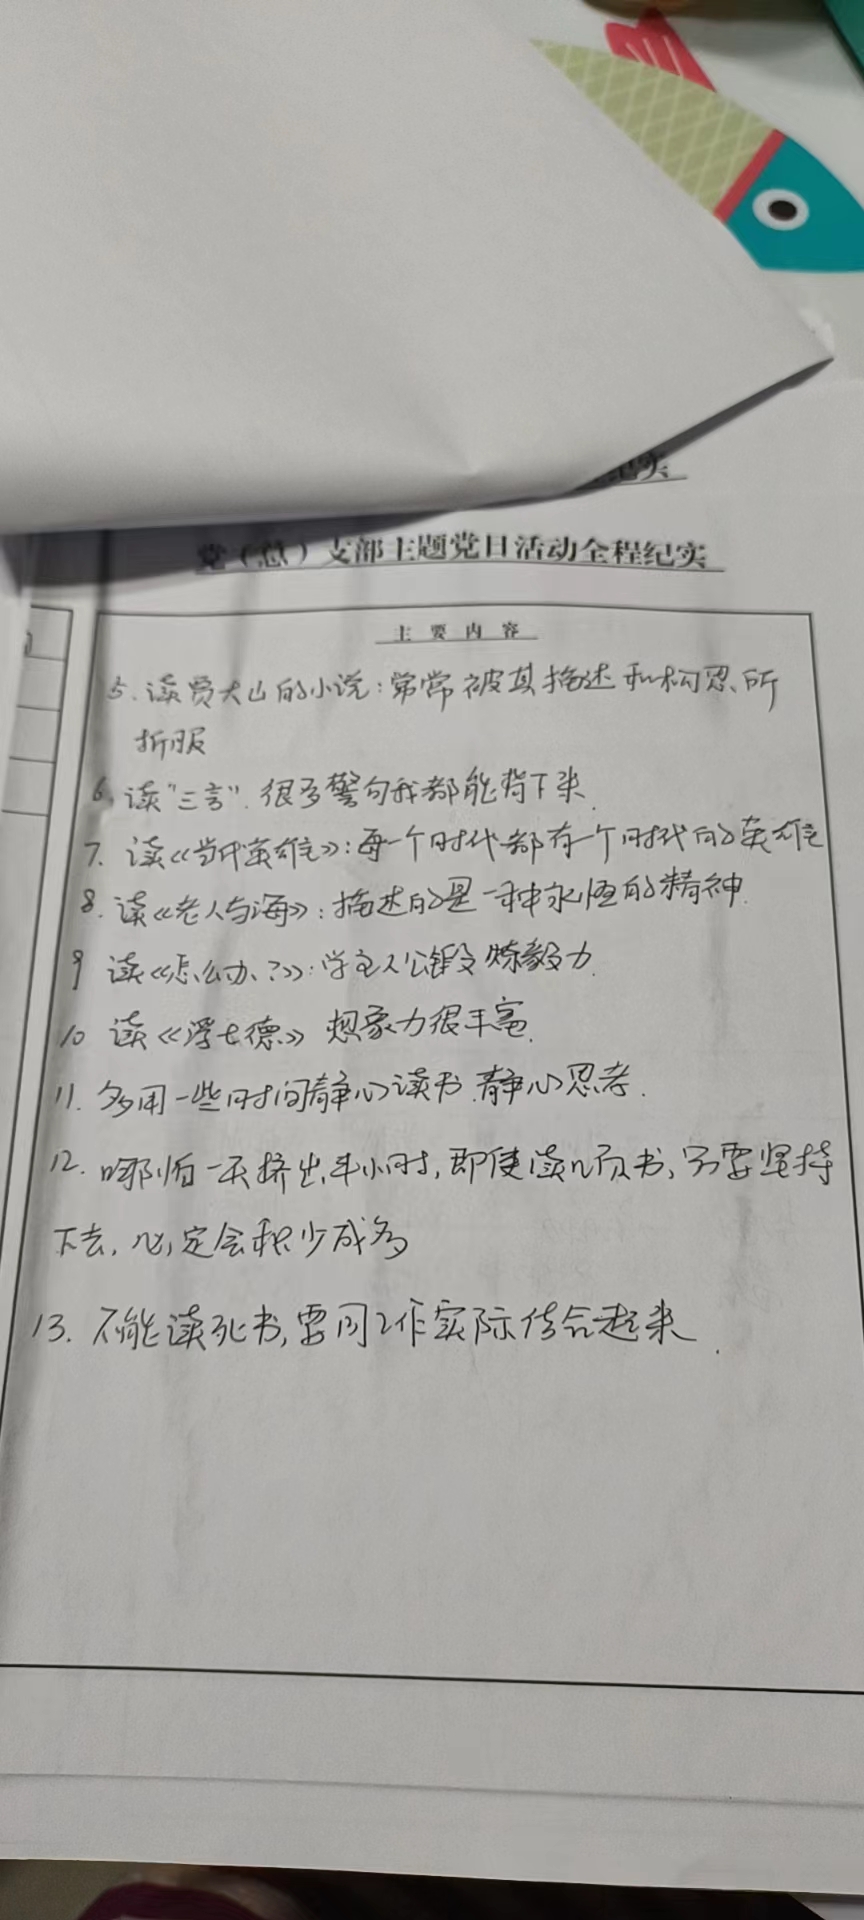 纪实
党（总）支部主题党日活动全程纪实
主要内容
5. 读贾大山的小说：常常被其描述和构思所
折服
6. 读"三言". 很多警句我都能背下来.
7. 读《当代英雄》：每一个时代都有一个时代的英雄
8. 读《老人与海》：描述的是一种永恒的精神.
9 读《怎么办？》：学主人公锻炼毅力.
10 读《浮士德》 想象力很丰富.
11. 多用一些时间静心读书.静心思考.
12. 哪怕一天挤出半小时, 即使读几页书, 只要坚持
下去, 必定会积少成多
13. 不能读死书, 要同工作实际结合起来.